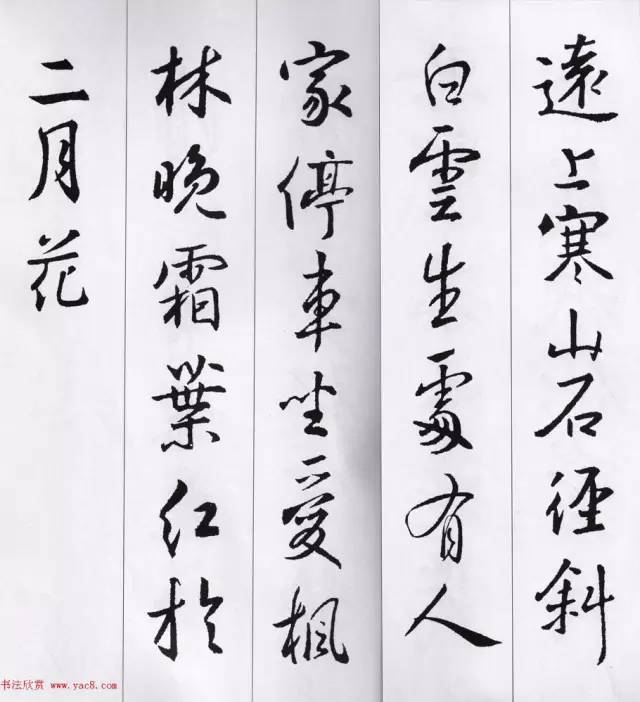 遠上寒山石徑斜
白雲生處有人
家停車坐愛楓
林晚霜葉紅於
二月花
书法欣赏 www.yac8.com